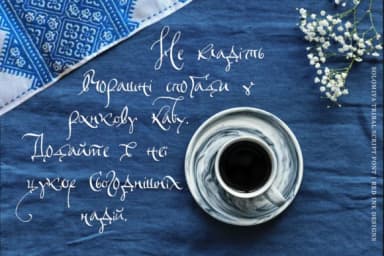 Не кладіть
вчорашні спогади у
ранкову каву.
Додайте у неї
цукор сьогоднішніх
надій.
KOLOMIYA TRIBAL SCRIPT FONT / RED INK DESIGNS